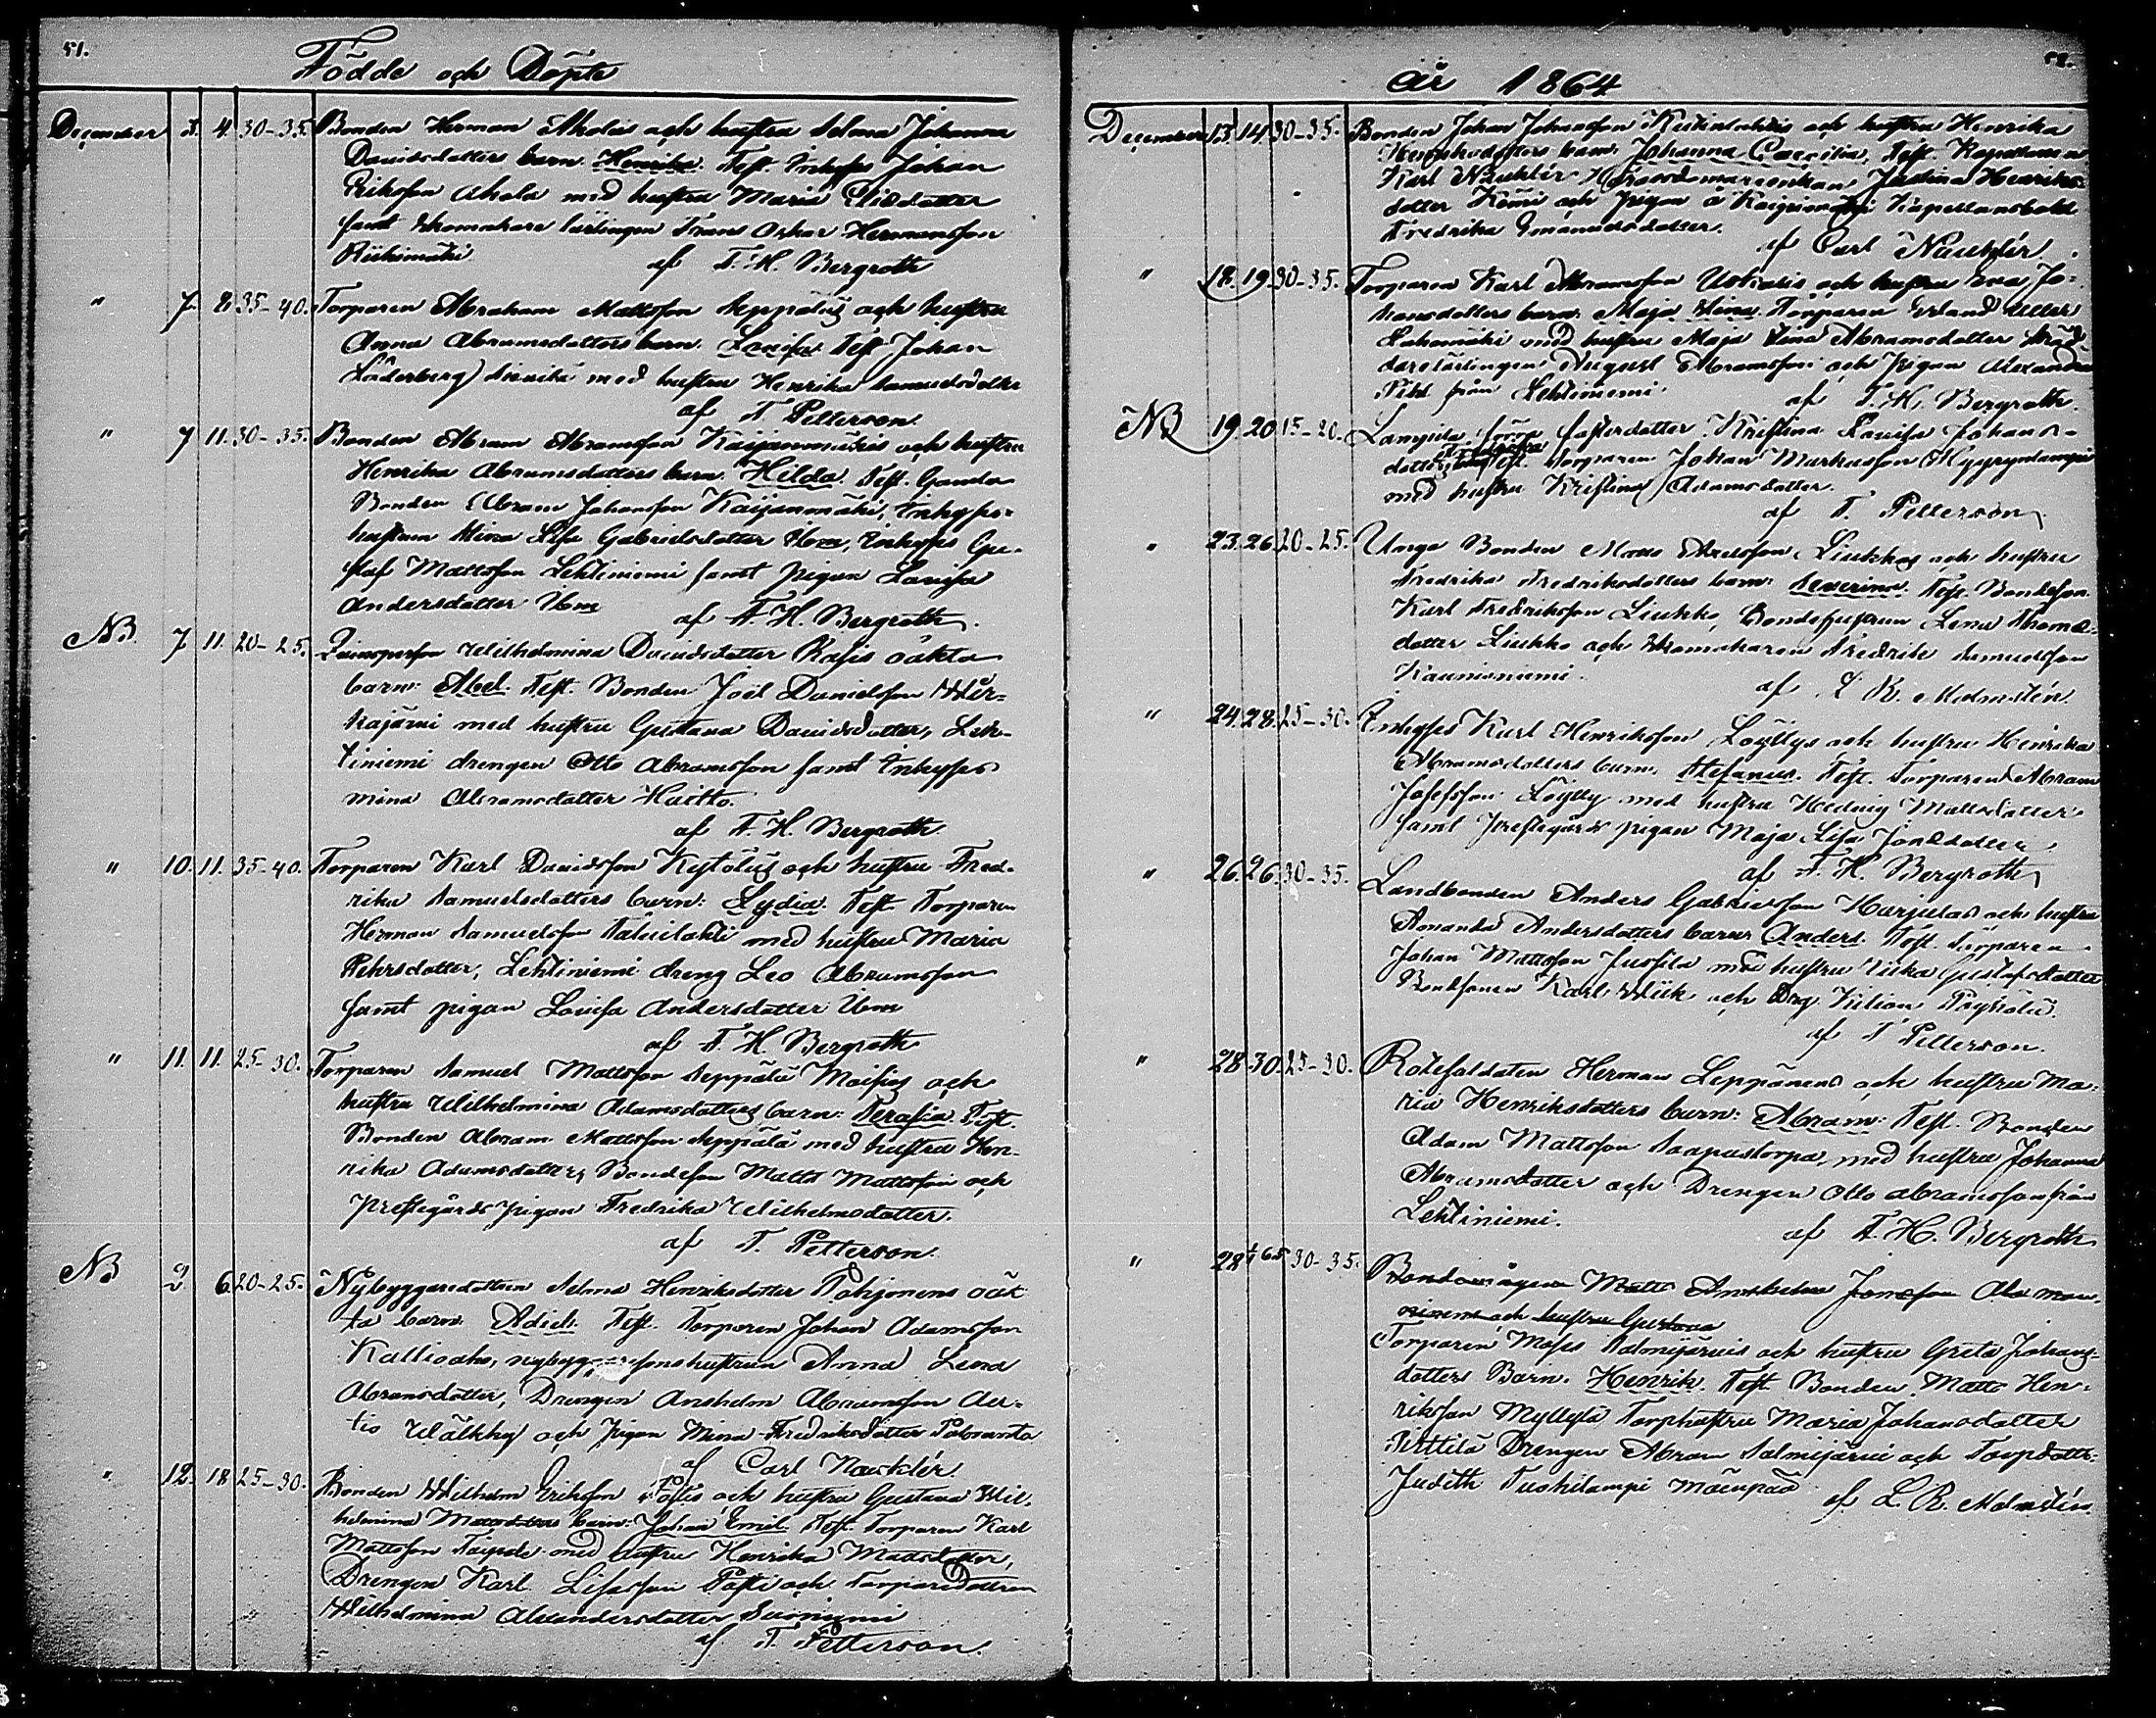 51.
Födde och Döpte
December 3. 4. 30-35. Bonden Herman Aholas och hustru Selma Johanna
Davidsdotters barn. Henrika. Test. Inhyses Johan
Eriksson Ahola med hustru Maria Elisdotter
samt skomakare lärlingen Frans Oskar Hermansson
Riihimäki af F. H. Bergroth
" 7. 8. 35-40. Torparen Abraham Mattsson Seppäläs och hustru
Anna Abramsdotters barn. Lovisa Test. Johan
Söderberg med hustru Henrika Samuelsdotter
af T. Petterson.
" 7 11. 30-35. Bonden Abram Abramsson Kaijanmäkis och hustru
Henrika Abramsdotters barn. Hilda. Test. Gamla
Bonden Abram Johansson Kaijanmäki, Inhyses-
hustrun Stina Lisa Gabrielsdotter Ibm, Inhyses Gu-
staf Mattsson Lehtiniemi samt pigan Lovisa
Andersdotter Ibm af F. H. Bergroth.
NB. 7 11. 20-25. Qvinsperson Wilhelmina Davidsdotter Rasis oäkta
barn: Abel. Test. Bonden Joël Danielsson Här-
kajärvi med hustru Gustava Davidsdotter, Leh-
tiniemi drengen Otto Abramsson samt Inhyses
mina Abramsdotter Huitto.
af F. H. Bergroth
" 10. 11. 35-40. Torparen Karl Davidsson Kytöläs och hustru Fred-
rika Samuelsdotters barn: Lydia. Test. Torparen
Herman Samuelsson med hustru Maria
Pehrsdotter, Lehtiniemi dreng Leo Abramsson
samt pigan Lovisa Andersdotter Ibm
af F. H. Bergroth
" 11. 11. 25-30. Torparen Samuel Mattsson Seppälä Moisios och
hustru Wilhelmina Adamsdotters barn: Serafia. Test.
Bonden Abram Mattsson Seppälä med hustru Hen-
rika Adamsdotter, Bondeson Matts Mattsson och
prestgårds pigan Fredrika Wilhelmsdotter.
af T. Petterson.
NB 2 6 20-25. Nybyggaredottren Selma Henriksdotter Pohjonens oäk
ta barn. Adiel. Test. Torparen Johan Adamsson
Kallioaho, hustrun Anna Lena
Abramsdotter, Drengen Anshelm Abramsson Au-
tio Wälkky och pigan Mina Fredriksdotter Paloranta
af Carl Næcklér.
" 12. 18 25-30. Bonden Wilhelm Eriksson Postis och hustru Gustava Wil-
helmina Mattsdotters barn: Johan Emil. Test. Torparen Karl
Mattsson Taipale med hustru Henrika Mattsdotter,
Drengen Karl Posti och Torparedottren
Wilhelmina Alexandersdotter Suoniemi
af T. Petterson.
52.
år 1864
December 13. 14. 30-35. Bonden Johan Johansson och hustru Henrika
barn. Johanna Caecilia. Test. Kapellanen
Karl Næcklér, Justina Henriks-
dotter Kömi och pigan å Kapellansbolet
Fredrika Emanuelsdotter.
af Carl Næcklér.
" 18. 19. 30-35. Torparen Karl Abramsson och hustru Eva Jo-
hansdotters barn. Maja Stina. Torparen Erland
Lahomäki med hustru Maja Stina Abramsdotter
August Abramsson och pigan Alexandra
från Lehtiniemi. af F. H. Bergroth.
NB 19. 20. 15-20. dotter Kristina Lovisa Johans-
dotters Test. Torparen Johan Markusson Myyrynlampi
med hustru Kristina Adamsdotter.
af T. Petterson
" 23. 26. 20-25. Unge Bonden Matts Axelsson Liukkos och hustru
Fredrika Fredriksdotters barn: Severina. Test. Bondeson
Karl Fredriksson Liukko, Bondhustrun Lena Thomæ-
dotter Liukko och skomakaren Fredrik Samuelsson
Kauminiemi.
af L R. Malmstén.
" 24. 28. 25-30. Inhyses Karl Henriksson Löyttys och hustru Henrika
Abramsdotters barn. Stefanus. Test. Torparen Abram
Josefsson Löytty med hustru Hedvig Mattsdotter
samt prestegårds pigan Maja Lisa Joelsdotter
af F. H. Bergroth
" 26. 26. 30-35. Landbonden Anders Gabrielsson Harjulas och hustru
Amanda Andersdotters barn Anders. Test. Torparen
Johan Mattsson Jussila med hustru Ulrika Gustafsdotter
Bondsonen Karl Wiik och Drg. Kilian
af T Petterson.
" 28. 30. 25-30. Rotesoldaten Herman Leppänens och hustru Ma-
ria Henriksdotters barn: Abram: Test. Bonden
Adam Mattsson Saapastorpa, med hustru Johanna
Abramsdotter och Drengen Otto Abramsson från
Lehtiniemi.
af F. H. Bergroth
" 28 1/1 65 30-35. Bondemågen Matts Anshelm Jonasson Ala man-
ninens och hustru Gustava
Torparen Moses Salmijärvis och hustru Greta Johans-
dotters Barn. Henrik. Test. Bonden Matts Hen-
riksson Myllylä Torphustru Maria Johansdotter
Perttilä Drengen Abram Salmijärvi och Torpdottr.
Judith Tuohilampi
af L. R. Malmstén.